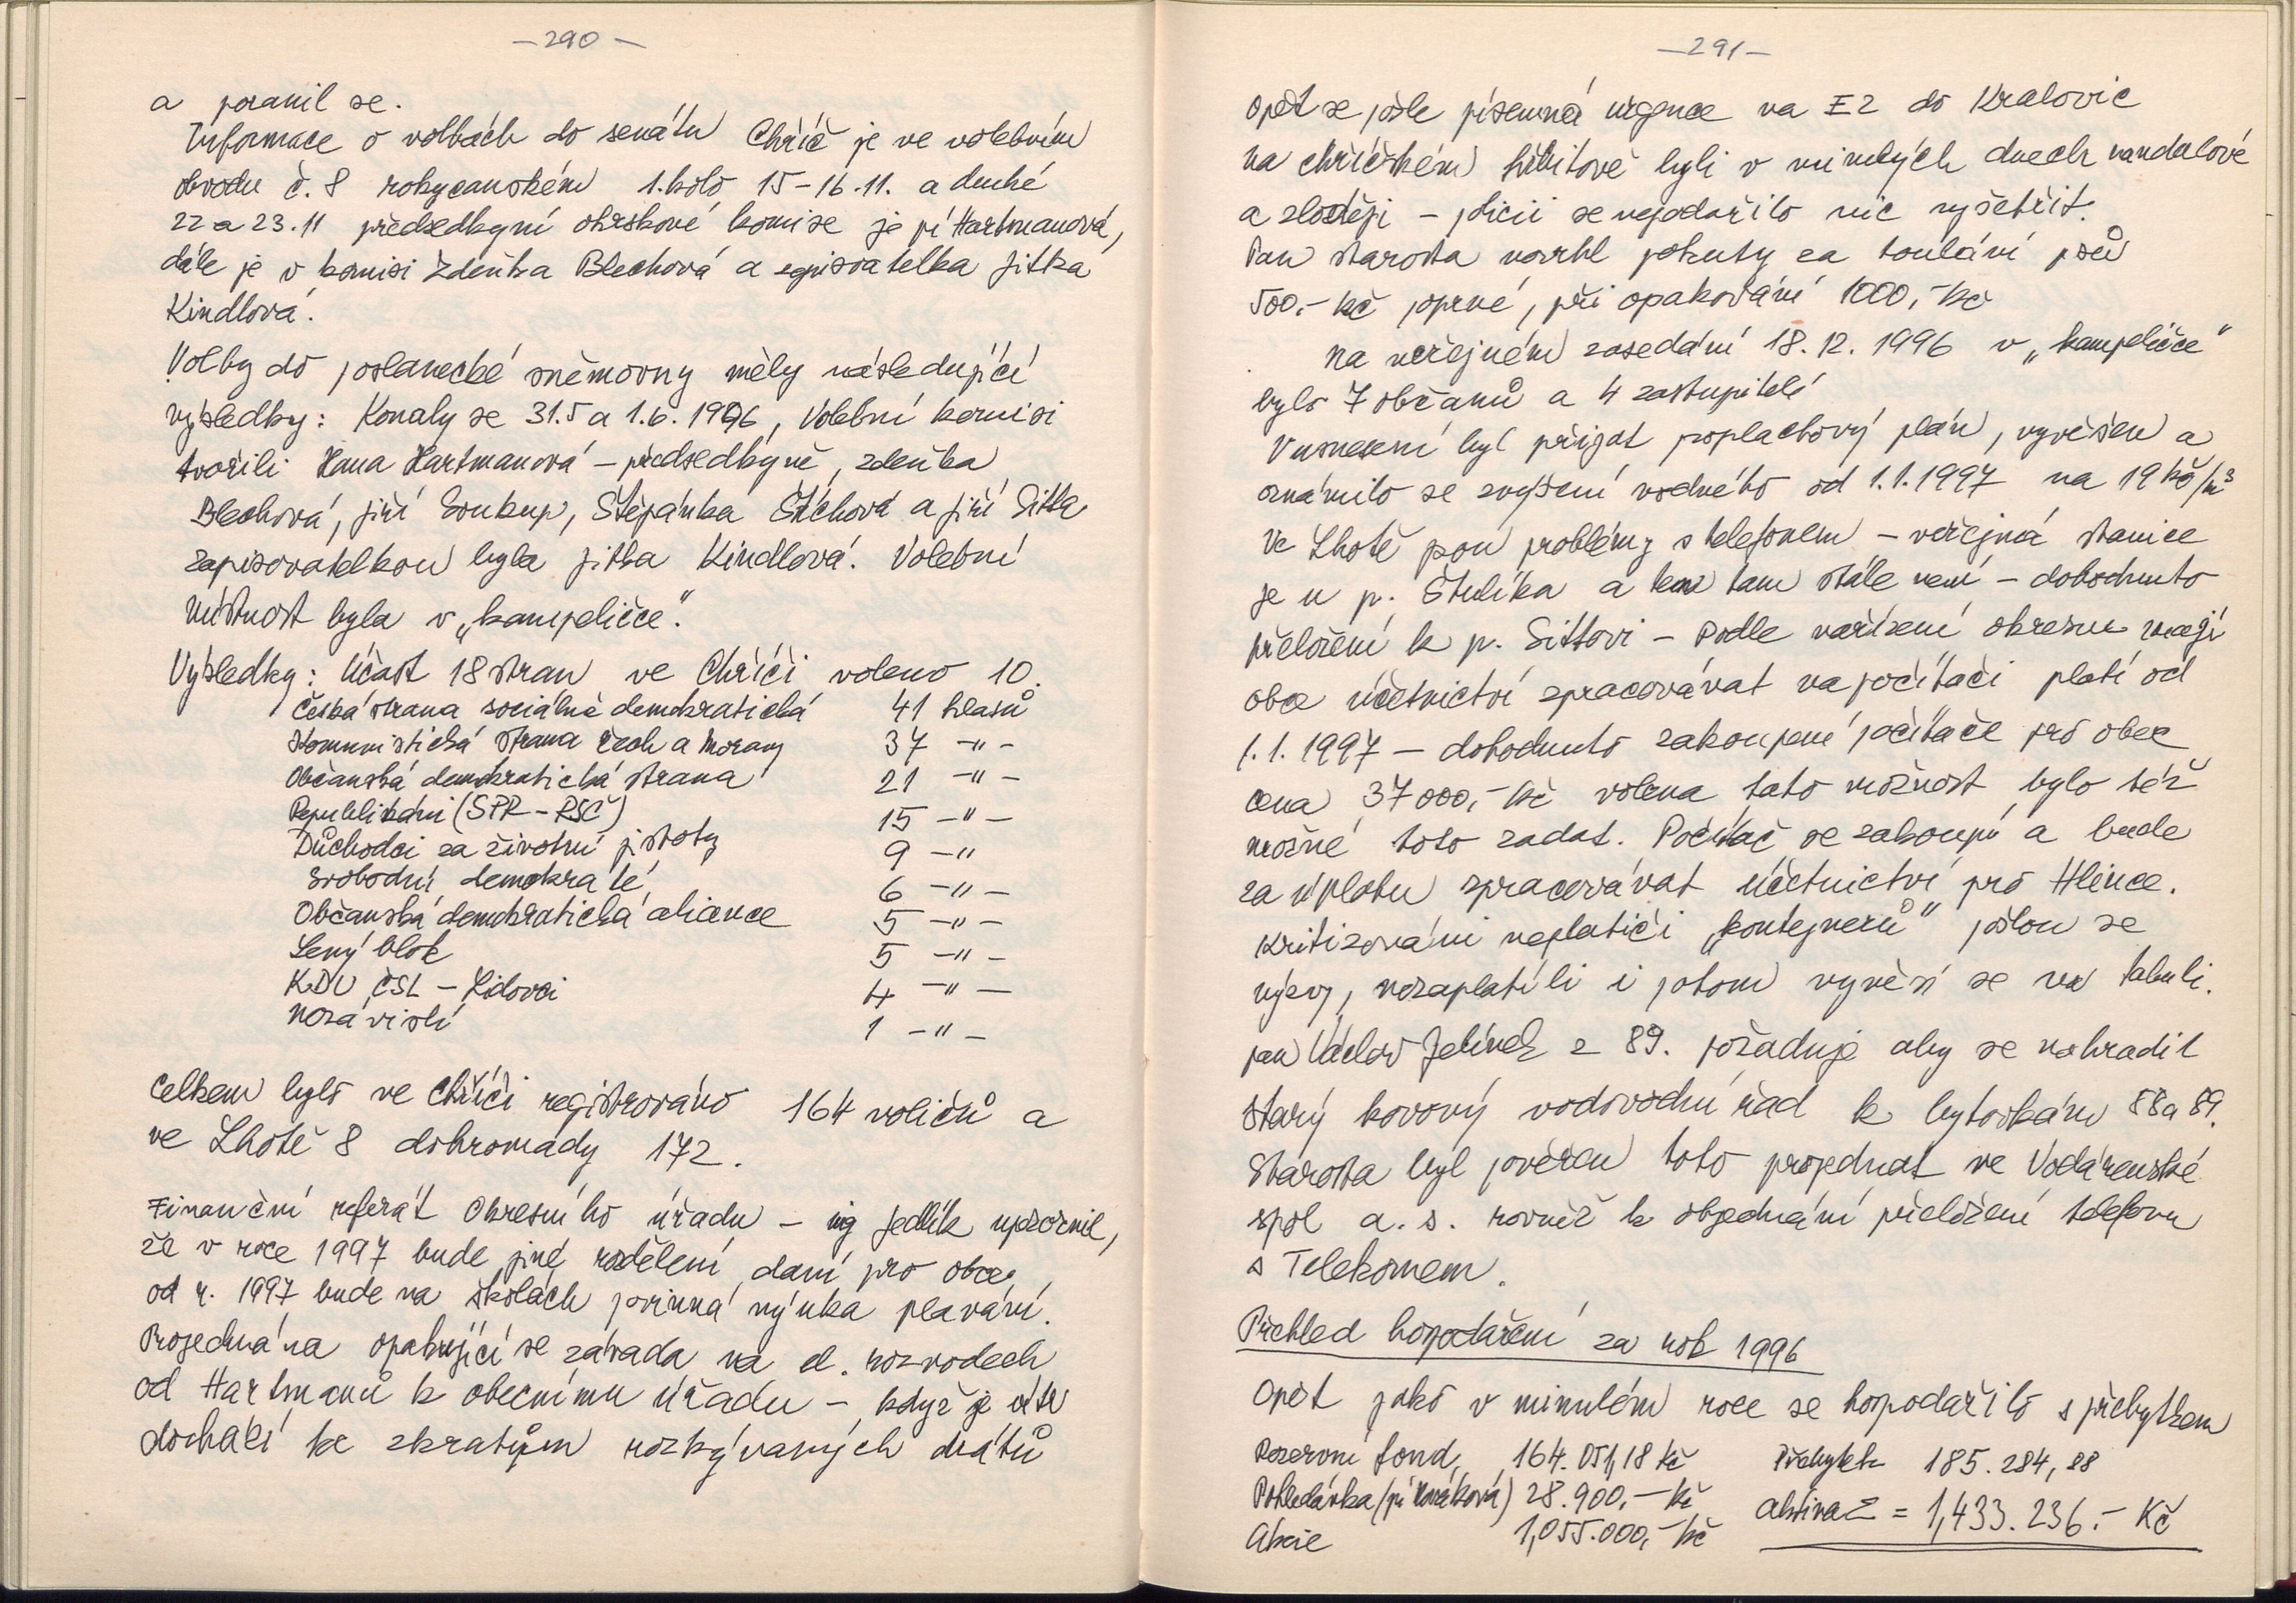 — 290 —
a poranil se.
Informace o volbách do senátu Chříč je ve volebním
obvodu č. 8 rokycanském 1. kolo 15-16.11. a druhé
22 a 23.11 předsedkyní okrskové komise je pí Hartmanová,
dále je v komisi Zdeňka Blechová a zapisovatelka Jitka
Kindlová.
Volby do poslanecké sněmovny měly následující
výsledky: Konaly se 31.5 a 1.6. 1996, Volební komisi
tvořili Hana Hartmanová – předsedkyně, Zdeňka
Blechová, Jiří Soukup, Štěpánka Štichová a Jiří Sitta
zapisovatelkou byla Jitka Kindlová. Volební
místnost byla v „kampeličce".
Výsledky: Účast 18 stran ve Chříči voleno 10.
Česká strana sociálně demokratická 41 hlasů
Komunistická strana Čech a Moravy 37 -"-
Občanská demokratická strana 21 -"-
Republikáni (SPR-RSČ) 15 -"-
Důchodci za životní jistoty 9 -"
Svobodní demokraté 6 -"-
Občanská demokratická aliance 5 -"-
Levý blok 5 -"-
KDU ČSL – Lidovci 4 -"-
Nezávislí 1 -"-
Celkem bylo ve Chříči registrováno 164 voličů a
ve Lhotě 8 dohromady 172.
Finanční referát Okresního úřadu – ing Jedlík upozornil,
že v roce 1997 bude jiné rozdělení daní pro obce,
od r. 1997 bude na školách povinná výuka plavání.
Projednána opakující se závada na el. rozvodech
od Hartmanů k obecnímu úřadu – když je vítr
dochází ke zkratům rozkývaných drátů
— 291 —
opět se pošle písemná urgence na EZ do Kralovic
na chříčském hřbitově byli v minulých dnech vandalové
a zloději – policii se nepodařilo nic vyšetřit.
Pan starosta navrhl pokuty za toulání psů
500,- Kč poprvé, při opakování 1000,- Kč
Na veřejném zasedání 18. 12. 1996 v „kampeličce"
bylo 7 občanů a 4 zastupitelé
V usnesení byl přijat poplachový plán, vyvěšen a
oznámilo se zvýšení vodného od 1.1.1997 na 19 Kč/m³
Ve Lhotě jsou problémy s telefonem – veřejná stanice
je u p. Štulíka a ten tam stále není – dohodnuto
přeložení k p. Sittovi – Podle nařízení okresu mají
obce účetnictví zpracovávat na počítači platí od
1.1. 1997 – dohodnuto zakoupení počítače pro obec
cena 37 000,- Kč volena tato možnost, bylo též
možné toto zadat. Počítač se zakoupí a bude
za úplatu zpracovávat účetnictví pro Hlince.
Kritizováni neplatiči „kontejnerů" pošlou se
výzvy, nezaplatí-li i potom vyvěsí se na tabuli.
pan Václav Jelínek z 89. požaduje aby se nahradil
starý kovový vodovodní řad k bytovkám 88 a 89.
Starosta byl pověřen toto projednat ve Vodárenské
spol a. s. rovněž k objednání přeložení telefonu
s Telekomem.
Přehled hospodaření za rok 1996
Opět jako v minulém roce se hospodařilo s přebytkem
Rezervní fond, 164.051,18 Kč Přebytek 185.284,88
Pohledávka (pí Nováková) 28.900,- Kč Aktiva Σ = 1,433.236.- Kč
Akcie 1,055.000,- Kč